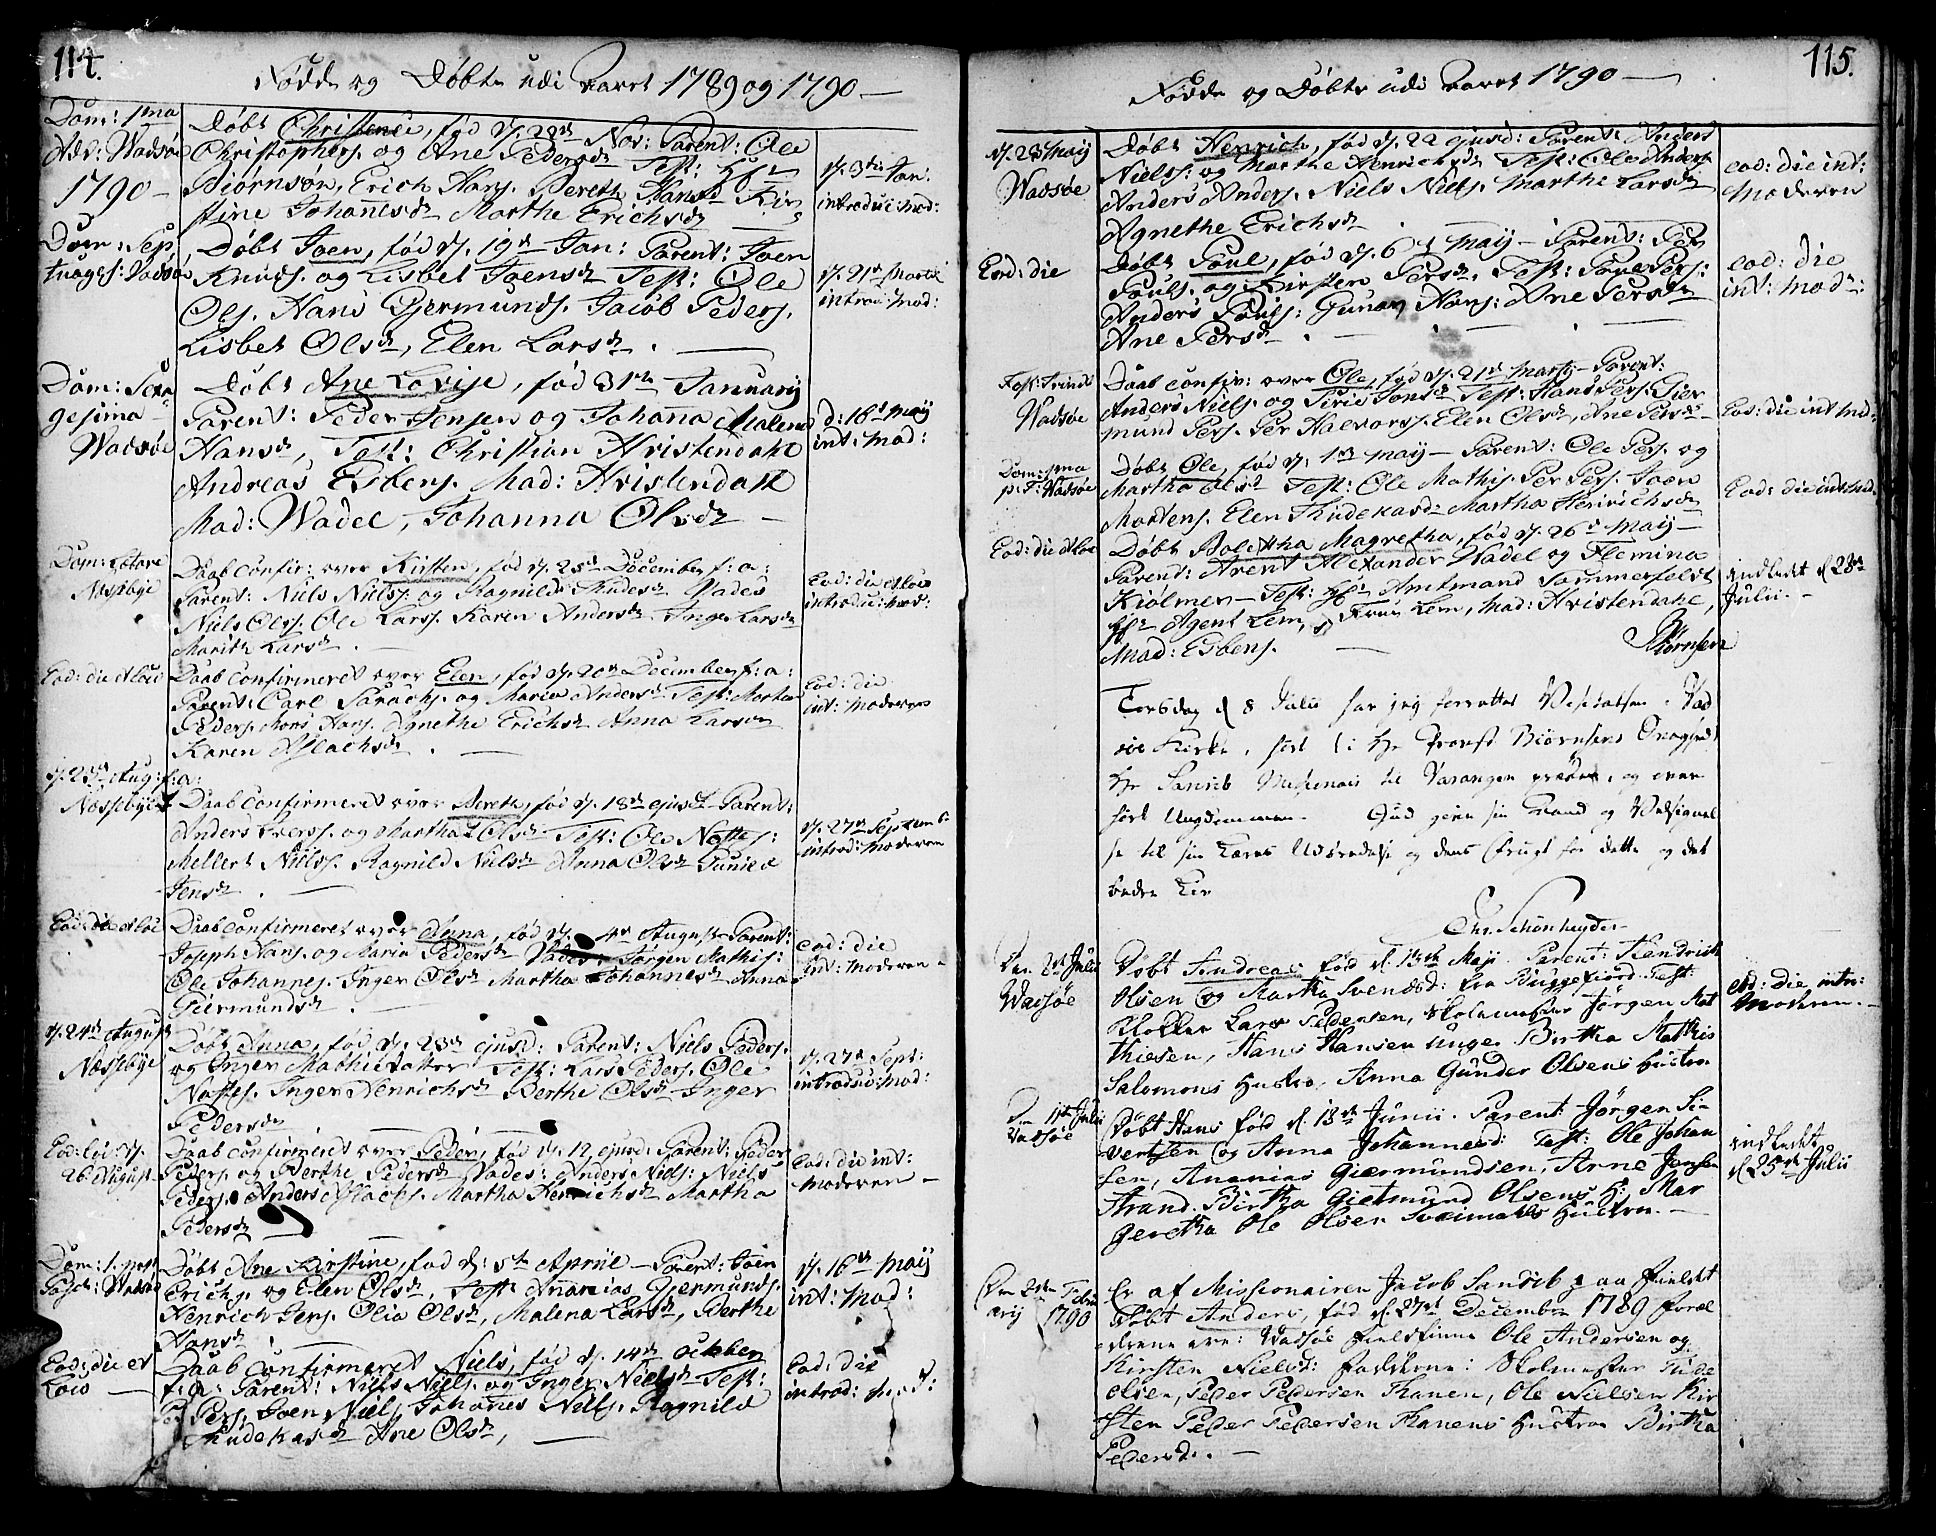 114.
Fødde og Døbte udi Aaret 1789 og 1790 —
Dom: 1ma
Adv: Wadsøe
1790 —
Døbt Christence, fød d. 28de Nov: Parent: Ole
Christophers. og Ane Pedersdr Test: Hr
Biørnson, Erich Hans. Bereth Hansdr Kir
stine Johannesdr Marthe Erichsdr
d. 3die Jan:
introduc: mod:
Dom: Sep
tuages: Vadsøe
Døbt Joen, fød d. 19de Jan: Parent: Joen
Knuds. og Lisbet Joensdr Test: Ole
Ols. Hans Gjermunds. Jacob Peders.
Lisbet Olsdr, Elen Larsdr.
d. 21de Martii
introd: mod:
Dom: Sexa
gesima
Wadsøe
Døbt Ane Lovise, fød 31te Januarij
Parent: Peder Jensen og Johanna Malena
Hansdr, Test: Christian Kristendahl
Andreas Esbens. Mad: Kristendahl
Mad: Wadel, Johanna Olsdr —
d: 16de Maij
int: mod:
Dom: Lætare
Næssebye
Daab confir: over Kirsten, fød d. 25de December f: a:
Parent: Niels Niels. og Ragnild Knudesdr Vades
Niels Ols. Ole Lars. Karen Andersdr Inger Larsdr
Marith Larsdr.
Eod: die et loco
introdu: mod:
Eod: die et loco
Daab confirmeret over Elen, fød d. 20de December f: a:
Parent: Carl Sarachs. og Maria Andersdr Test: Morten
Peders. Mons Hans. Agnethe Erichsdr Anna Larsdr
Karen Aslachsdr.
Eod: die
int: Moderen
d. 23de Aug: f: a:
Næssebye
Daab confirmeret over Bereth, fød d. 18de ejusd: Parent:
Anders Ivers. og Martha Olsdr Test: Ole Nottes:
Mellert Niels. Ragnild Nielsdr Anna Olsdr Gunild
Jensdr.
d. 27de Septemb:
introd: Moderen
Eod: die et loc
Daab confirmeret over Anna, fød d. 4de August Parent:
Joseph Hans. og Maria Pedersdr Vades: Jørgen Mathis:
Ole Johannes. Inger Olsdr Martha Johannesdr Anna
Giermundsdr.
Eod: die
int: Moderen —
d. 24de August
Næssebye
Døbt Anna, fød d. 23de ejusd: Parent: Niels Peders.
og Inger Mathisdatter Test: Lars Peders. Ole
Nottes. Inger Henrichsdr Berthe Olsdr Inger
Pedersdr
d. 27de Sept:
introdu: Mod:
Eod: loc d.
26 August
Daab confirmeret over Peder, fød d. 12 ejusd: Parent: Peder
Peders. og Berthe Pedersdr Vades: Anders Niels: Niels
Peders. Anders Aslachs. Martha Henrichsdr Martha
Pedersdr
Eod: die int:
Moderen —
Dom: 1. post
Pasch: Wadsøe
Døbt Ane Kirstine, fød d: 5te Aprile — Parent: Joen
Erichs. og Elen Olsdr, Test: Ananias Gjermunds.
Henrich Jens. Olia Olsdr, Malena Larsdr, Berthe
Hansdr.
d. 16de Maij
int: Mod:
Eod: die et
Loco —
Daab confirmeret Niels, fød d. 14de october
f: a: Parent: Niels Niels. og Inger Nielsdr Test:
Per Pers. Joen Niels. Johanes Niels. Ragnild
Knudekasdr Ane Olsdr,
Eod: die
introd: mod:
115.
Fødde og Døbte udi Aaret 1790 —
d. 23 Maij
Wadsøe
Døbt Henrich, fød d. 22 ejusd: Parent: Anders
Niels: og Marthe Henrichsdr Test: Ole Anders.
Anders Anders. Niels Niels. Marthe Larsdr
Agnethe Erichsdr.
eod: die int:
Moderen
Eod: die
Døbt Poul, fød d. 6 Maij — Parent: Per
Pouls. og Kirsten Persdr, Test: Poul Pers:
Anders Pouls: Gunar Hans: Ane Persdr
Ane Persdr.
eod: die
int: Modr:
Fest: Trinit
Wadsøe
Daab confir: over Ole, fød d. 21de Martij Parent:
Anders Niels. og Perie Jonsdr Test: Hans Pers. Gier
mund Pers. Per Halvors. Elen Olsdr, Ane Persdr
Eod: die int Mod:
Dom: 1ma
p: T: Wadsøe
Døbt Ole, fød d. 1de Maij — Parent: Ole Pers. og
Martha Olsdr Test: Ole Mathis. Per Pers. Joen
Mortens. Elen Knudekasdr Martha Henrichsdr
Eod: die int: Mod.
Eod: die et loc
Døbt Boletha Magretha, fød d. 26de Maij —
Parent: Arent Alexander Wadel og Flemina
Kiølmer — Test: Hr Amtmand Sommerfeldt
Hr Agent Lem, Frue Lem, Mad: Kristendahl,
Mad: Esbens. —
Biørnsen
indledt d 28de
Julii. —
Torsdag d 8 Julii har jeg forrettet Visitatsen i Vad
søe Kirke, hørt Hr Provst Biørnsens
Hr Sandib Missionair til Varanger prædike, og over
hørt Ungdommen. Gud give sin Naade og Velsignel
se til sin Læres Udbredelse og dens Frugt for dette og det
bedre Liv
Chr: Schønheyder
Den 2de Julii
Wadsøe
Døbt Andreas fød d. 13de Maji. Parent: Hendrich
Olsen og Martha Svendsd: fra Buggefiord. Test:
Klokker Lars Pedersen, Skolemester Jørgen Mat
thiesen, Hans Hansen unge Birtha Mathis
Salomons Hustro, Anna Gunder Olsens Hustro
eod: die int:
Modren. —
Den 11te Julii
Vadsøe
Døbt Hans fød d. 13de Junii. Parent: Jørgen Si-
vertsen og Anna Johannesd: Test: Ole Johan
sen, Ananias Giermundsen, Arne Jensen
Strand. Birtha Giermund Olsens H: Mar
gretha Ole Olsen Hustru. —
indledt
d. 25de Julii
Den 2den Febru
arij 1790
Er af Missionairen Jacob Sandib paa Fieldet
døbt Anders, fød d. 27de December 1789 Foræl
drene ere: Vadsøe Fieldfinne Ole Andersen og
Kirsten Nielsd: Fadderne: Skolmester Jude
Olsen, Peder Pedersen Thanen, Ole Nielsen Kir
sten Peder Pedersen Thanens Hustroe Birtha
Pedersd. —